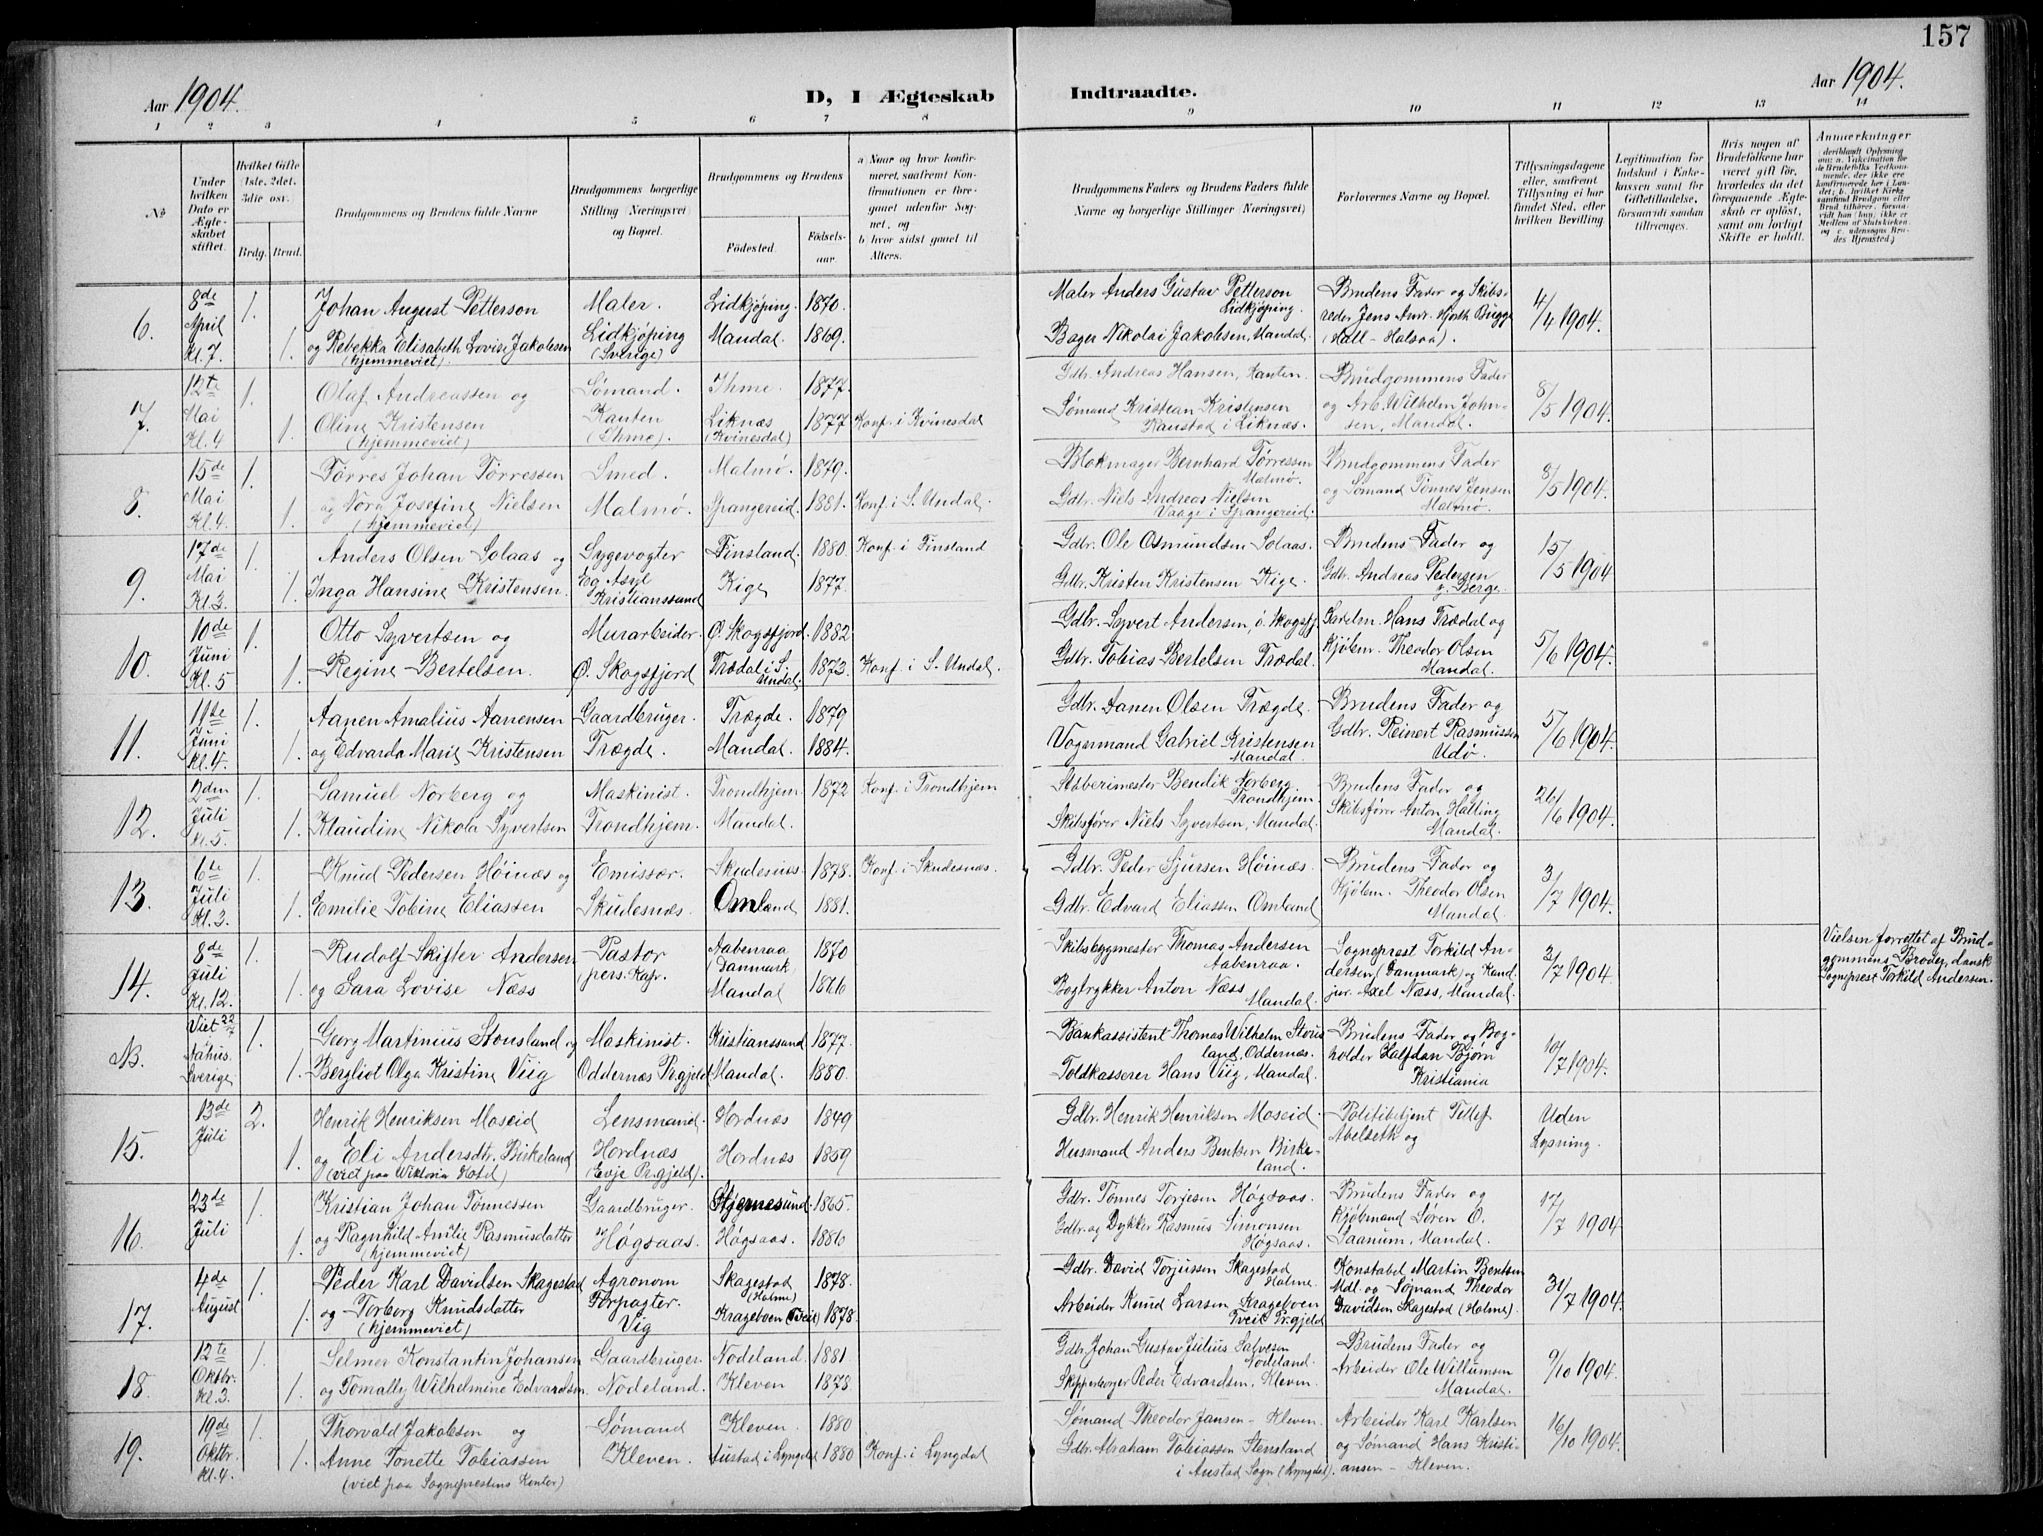 157
Aar 1904.
D, I Ægteskab Indtraadte.
Aar 1904.
1 2 3 4 5 6 7 8 9 10 11 12 13 14
№
Under hvilken Dato er Ægteskabet stiftet.
Hvilket Gifte 1ste, 2det, 3die osv.
Brdg. Brud.
Brudgommens og Brudens fulde Navne
Brudgommens borgerlige Stilling (Næringsvei) og Bopæl.
Brudgommens og Brudens
Fødested.
Fødselsaar.
a Naar og hvor konfirmeret, saafremt Konfirmationen er foregaaet udenfor Sognet, og
b hvor sidst gaaet til Alters.
Brudgommens Faders og Brudens Faders fulde Navne og borgerlige Stillinger (Næringsvei)
Forlovernes Navne og Bopæl.
Tillysningsdagene eller, saafremt Tillysning ei har fundet Sted, efter hvilken Bevilling
Legitimation for Indskud i Enkekassen samt for Giftetilladelse, forsaavidt saadan tiltrænges.
Hvis nogen af Brudefolkene har været gift før, hvorledes da det foregaaende Ægteskab er opløst, samt om lovligt Skifte er holdt.
Anmærkninger
6. 8de April Kl. 7 1. Johan August Petterson Maler. Lidkjøping. 1870. Maler Anders Gustav Petterson Lidkjøping. Brudens Fader og Skibs- 4/4 1904.
1. og Rebekka Elisabeth Lovise Jakobsen (hjemmeviet) Lidkjøping (Sverige) Mandal. 1869. Bager Nikolai Jakobsen, Mandal. reder Jens Andr. Hjorth Bugge (Hall - Halsaa).
7. 12te Mai Kl. 4 1. Olaf Andreassen og Sømand. Ihme. 1877. Gdbr. Andreas Hansen, Kanten. Brudgommens Fader 8/5 1904.
1. Oline Kristensen (hjemmeviet) Kanten (Ihme). Liknæs (Kvinesdal) 1877 Konf. i Kvinesdal Sømand Kristian Kristensen i Liknæs. og Arb. Wilhelm Johnsen, Mandal.
8. 15de Mai Kl. 4. 1. Tørres Johan Tørressen Smed. Malmø. 1879. Blokmager Bernhard Tørressen Malmø. Brudgommens Fader 8/5 1904.
1. og Nora Josefine Nielsen (hjemmeviet) Malmø. Spangereid. 1881. Konf. i S. Undal. Gdbr. Niels Andreas Nielsen Vaage i Spangereid. og Sømand Tønnes Jensen Malmø.
9. 17de Mai Kl. 3. 1. Anders Olsen Solaas og Sygevogter Finsland. 1880. Konf. i Finsland Gdbr. Ole Osmundsen Solaas. Brudens Fader og 15/5 1904
1. Inga Hansine Kristensen. Eg Asyl Kristianssund Kige 1877. Gdbr. Kristen Kristensen Kige. Gdbr. Andreas Pedersen Berge.
10. 10de Juni Kl. 5 1. Otto Syvertsen og Murarbeider. Ø. Skogsfjord. 1882. Gdbr. Syvert Andersen, ø. Skogsfj. Hans Trædal og 5/6 1904.
1. Regine Bertelsen. Ø. Skogsfjord Trædal i S. Undal. 1873. Konf. i S. Undal. Gdbr. Tobias Bertelsen Trædal. Kjøbm. Theodor Olsen Mandal.
11. 11te Juni Kl. 4. 1. Aanen Amalius Aanensen Gaardbruger. Trægde. 1879 Gdbr. Aanen Olsen Trægde. Brudens Fader og 5/6 1904.
1. og Edvarda Marie Kristensen Trægde. Mandal. 1884. Vognmand Gabriel Kristensen Mandal. Gdbr. Reinert Rasmussen Udø.
12. 2den Juli Kl. 5. 1. Samuel Norberg og Maskinist. Trondhjem. 1872 Konf. i Trondhjem Støberimester Bendik Norberg Trondhjem Brudens Fader og 26/6 1904.
1. Klaudine Nikola Syvertsen Trondhjem. Mandal. Skibsfører Niels Syvertsen, Mandal. Skibsfører Anton Halling Mandal.
13. 6te Juli Kl. 3. 1. Knud Pedersen Høinæs og Emissær. Skudesnæs. 1878. Konf. i Skudesnæs. Gdbr. Peder Sjursen Høinæs. Brudens Fader og 3/7 1904.
1. Emilie Tobine Eliassen Skudesnæs. Omland 1881. Gdbr. Edvard Eliassen Omland Kjøbm. Theodor Olsen Mandal.
14. 8de Juli Kl. 12. 1. Rudolf Skifter Andersen Pastor Aabenraa (Danmark 1870 Skibsbygmester Thomas Andersen Aabenraa. Sogneprest Torkild Andersen (Danmark) og Kand. 3/7 1904. Vielsen forrettet af Brudgommens Broder, dansk Sogneprest Torkild Andersen.
1. og Sara Lovise Næss pers. Kap. Mandal 1866 Bogtrykker Anton Næss Mandal. jur. Axel Næss, Mandal.
NB. Viet 22/7 Nähus Sverige 1. Georg Martinius Stousland og Maskinist. Kristianssund 1877. Bankassistent Thomas Wilhelm Stousland, Oddernæs. Brudens Fader og Bogholder Halfdan Bjørn Kristiania 10/7 1904.
1. Bergliot Olga Kristine Viig Oddernæs Pr.gjeld Mandal. 1880. Toldkasserer Hans Viig, Mandal.
15. 13de Juli 2. Henrik Henriksen Moseid Lensmand. Hordnæs 1849 Gdbr. Henrik Henriksen Moseid. Politibetjent Tellef Abelseth og Uden Lysning.
1. og Eli Andersdtr. Birkeland (viet paa Wiktoria Hotel) Hordnæs (Evje Pr.gjeld). Hordnæs 1859 Husmand Anders Bentsen Birkeland.
16. 23de Juli 1. Kristian Johan Tønnessen Gaardbruger. Stjernesund. 1865. Gdbr. Tønnes Torjesen Høgsaas. Brudens Fader og 17/7 1904
1. og Ragnhild Amilie Rasmusdatter (hjemmeviet) Høgsaas. Høgsaas. 1886 Gdbr. og Dykker Rasmus Simonsen Høgsaas. Kjøbmand Søren O. Saanum, Mandal.
17. 4de August 1. Peder Karl Davidsen Skagestad Agronom Skagestad (Holme) 1878. Gdbr. David Torjussen Skagestad Holme. Konstabel Martin Bentsen 31/7 1904.
1. og Torborg Knudsdatter (hjemmeviet) Forpagter. Vig Krageboen (Tveit) 1878. Arbeider Knud Larsen Krageboen Tveit Pr.gjeld Mdl. og Sømand Theodor Davidsen Skagestad (Holme).
18. 12te Oktbr. Kl. 3. 1. Selmer Konstantin Johansen Gaardbruger. Nodeland. 1881 Gdbr. Johan Gustav Julius Salvesen Nodeland. Brudens Fader og 9/10 1904.
1. og Tomally Wilhelmine Edvardsen Nodeland. Kleven 1878. Skipperborger Peder Edvardsen, Kleven. Arbeider Ole Willumsen Mandal.
19. 19de Oktbr. Kl. 4. 1. Thorvald Jakobsen og Sømand Kleven. 1880 Sømand Theodor Jansen - Kleven. Arbeider Karl Karlsen 16/10 1904.
1. Anne Tonette Tobiassen (viet paa Sogneprestens Kontor) Kleven. Austad i Lyngdal 1880 Konf. i Lyngdal Gdbr. Abraham Tobiassen Stensland i Austad Sogn (Lyngdal). og Sømand Hans Kristiansen - Kleven.